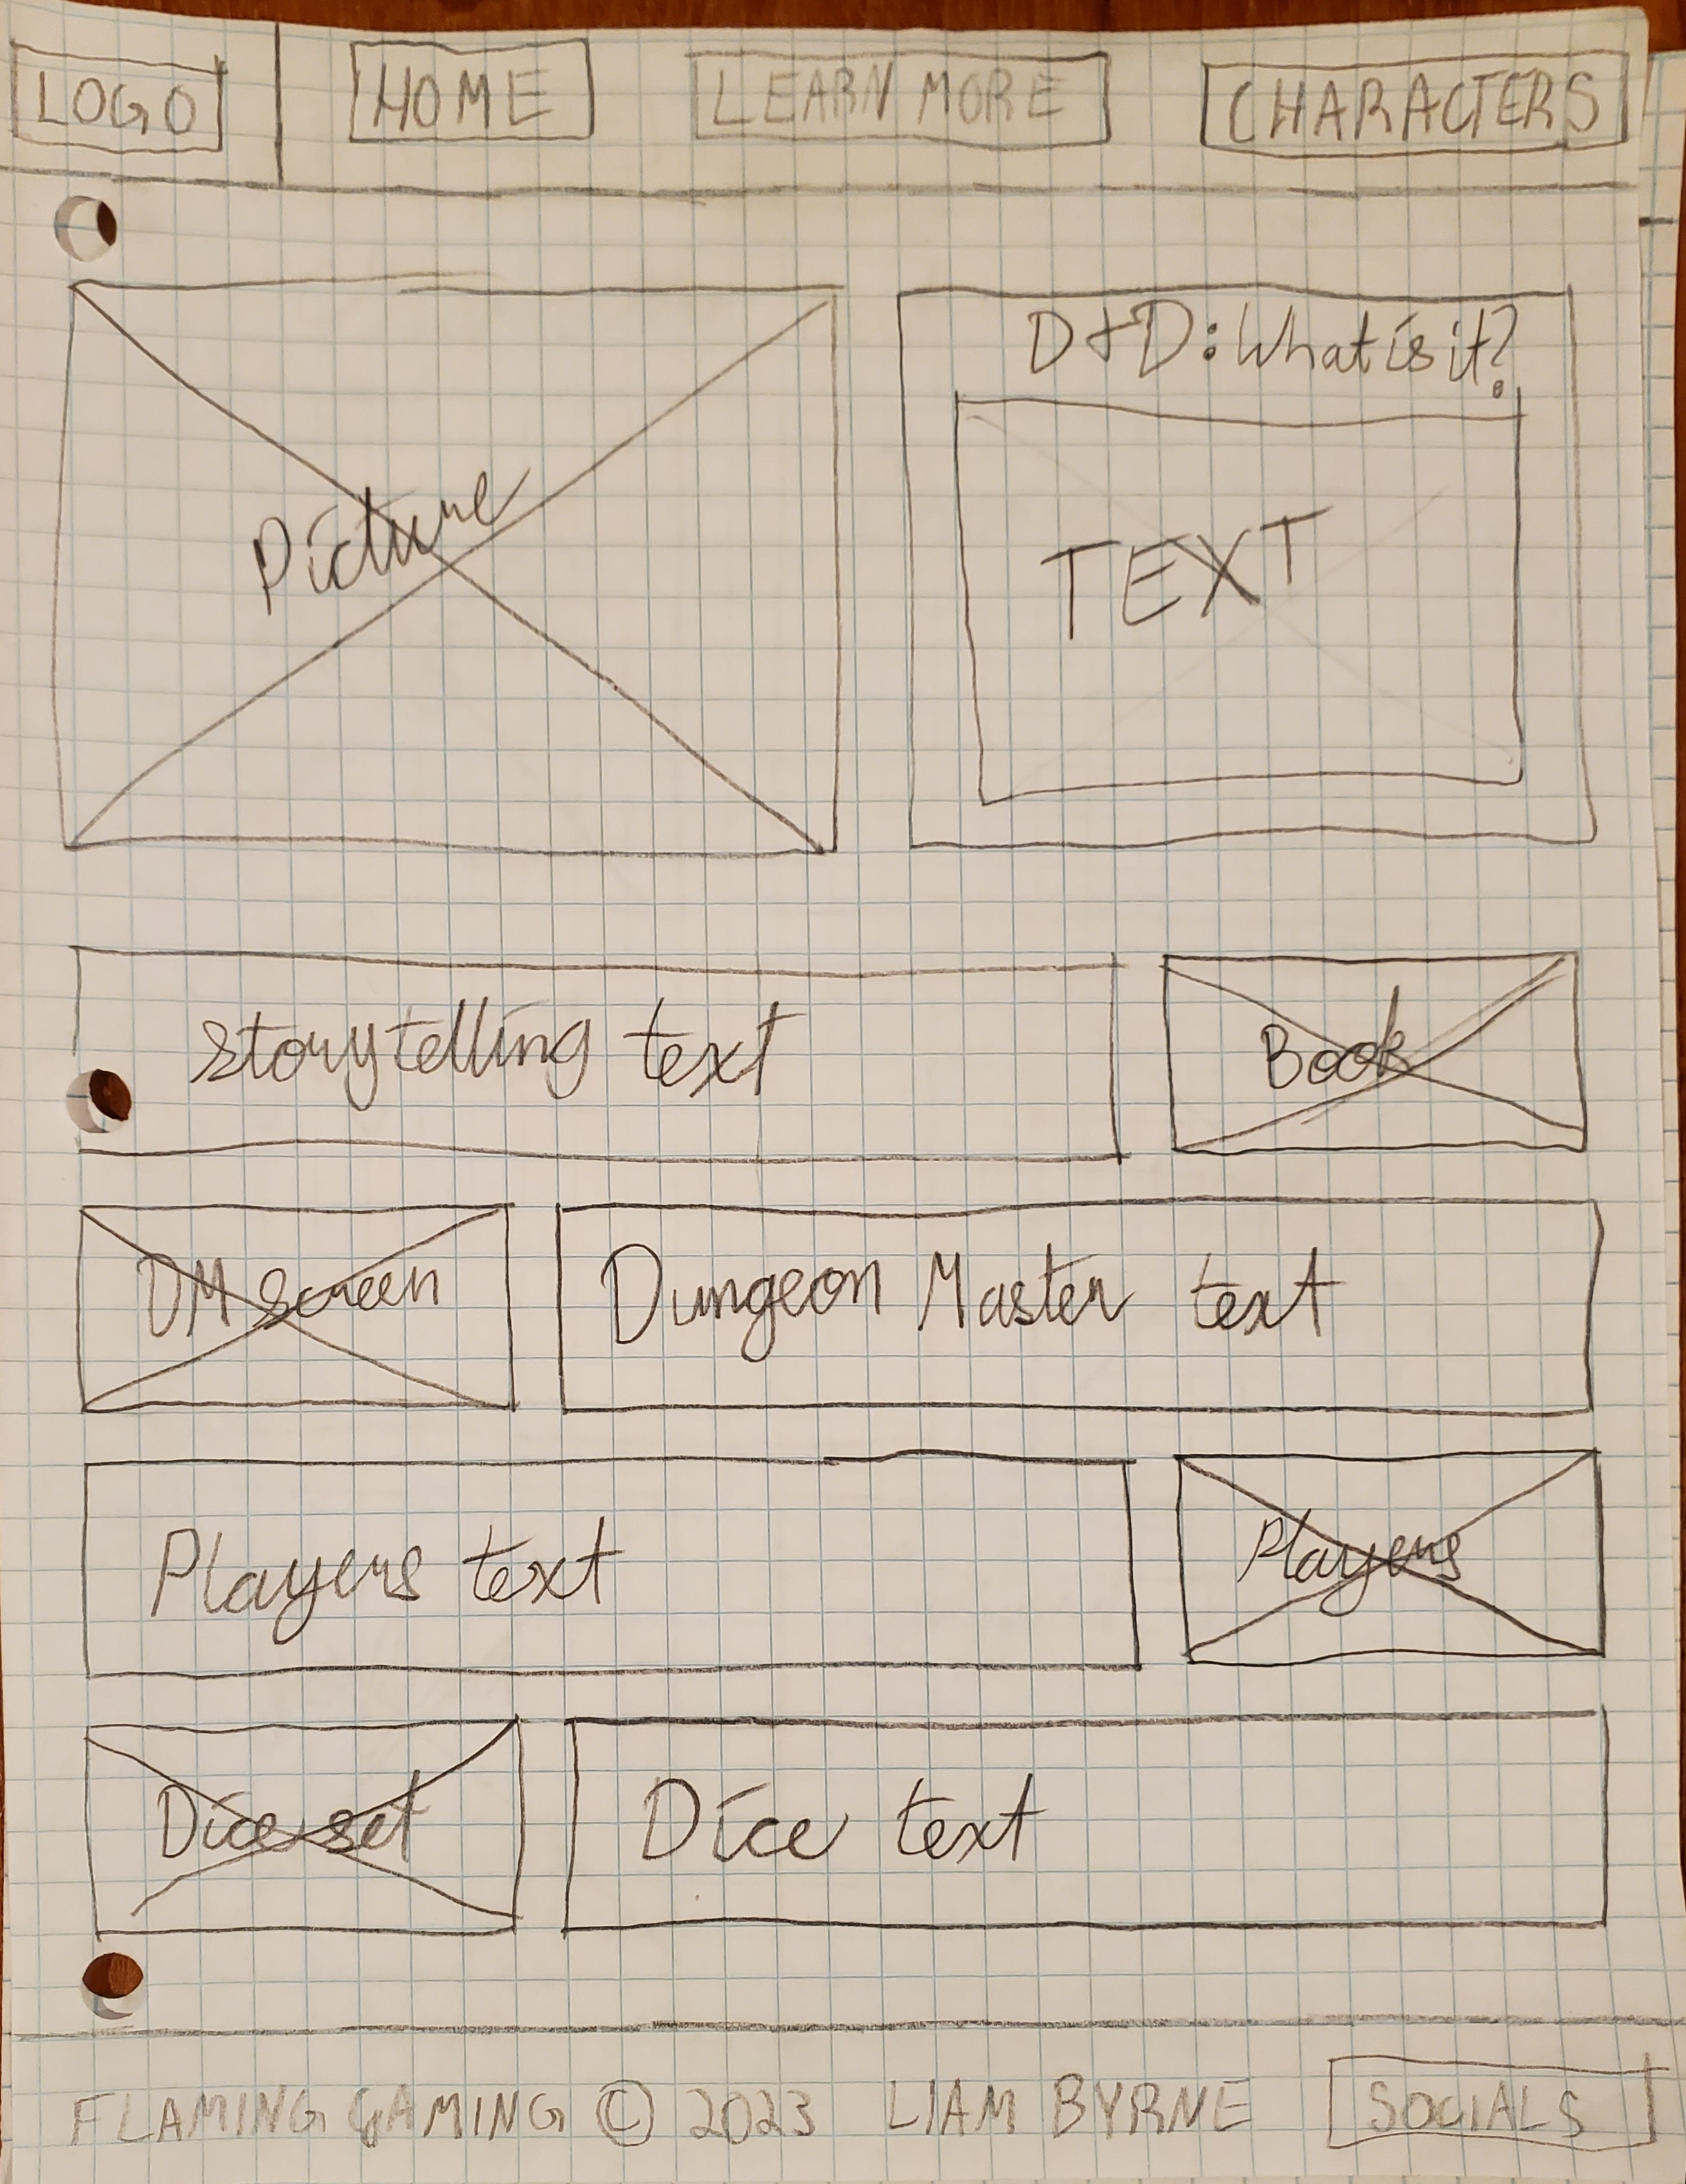 LOGO HOME LEARN MORE CHARACTERS
D&D: What is it?
Picture
TEXT
Storytelling text Book
DM screen Dungeon Master text
Players text Players
Dice set Dice text
FLAMING GAMING © 2023 LIAM BYRNE SOCIALS